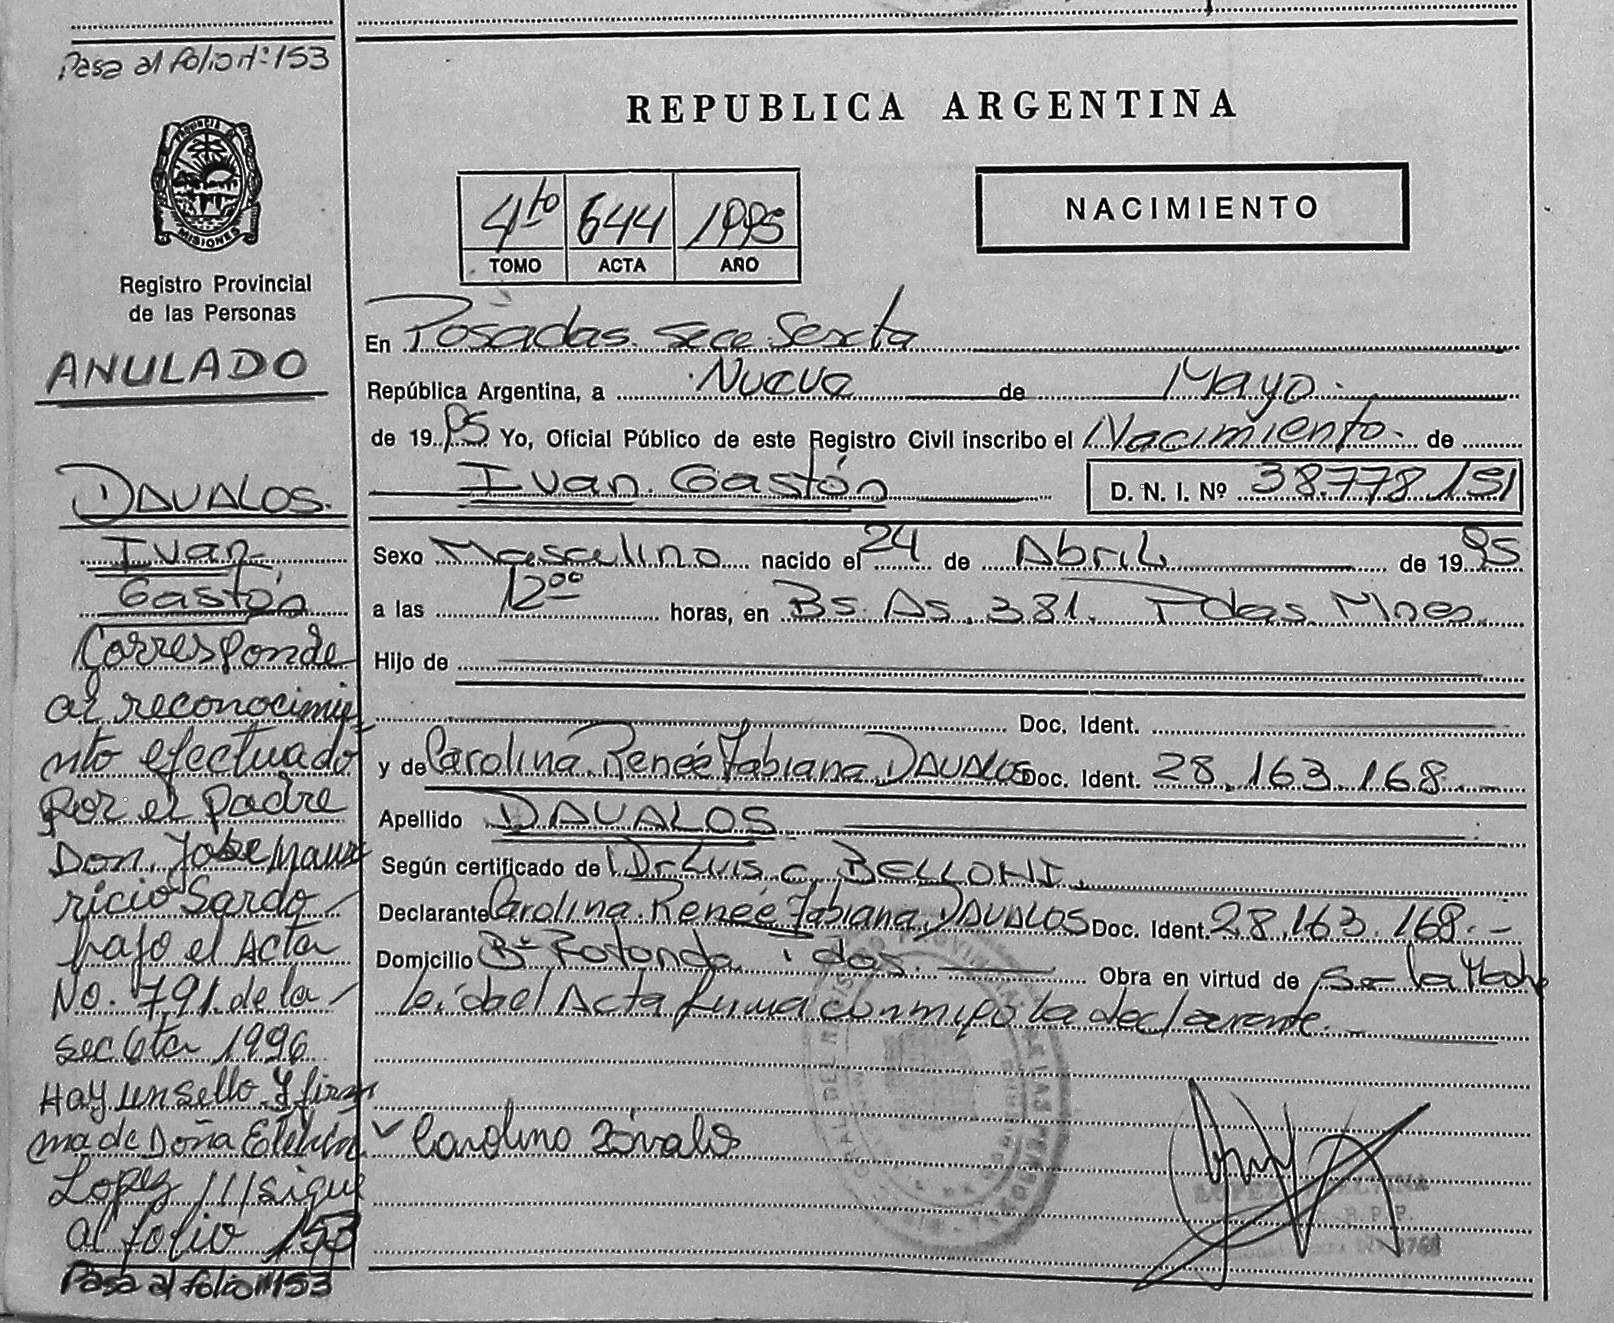 Pasa al folio nº 153
PROVINCIA DE
MISIONES
Registro Provincial
de las Personas
ANULADO
DAVALOS.
Ivan
Gastón
Corresponde
al reconocimie
nto efectuado
por el padre
Don. Jose Mau
ricio Sardo
bajo el Acta
No. 791. de la
sec 6ta 1996
Hay un sello y fir
ma de Doña Etelvin
Lopez /// sigue
al folio 153
Pasa al folio nº 153
REPUBLICA ARGENTINA
4to 644 1995
TOMO ACTA AÑO
NACIMIENTO
En Posadas. Secc. Sexta
República Argentina, a Nueve de Mayo.
de 19 95 Yo, Oficial Público de este Registro Civil inscribo el Nacimiento. de
Ivan. Gastón D. N. I. Nº 38.778.151
Sexo Masculino nacido el 24 de Abril de 19 95
a las 12 00 horas, en Bs. As. 381. Pdas. Mnes.
Hijo de
Doc. Ident.
y de Carolina. Renée Fabiana. DAVALOS Doc. Ident. 28.163.168.
Apellido DAVALOS
Según certificado de Dr. Luis C. BELLONI.
Declarante Carolina. Renée Fabiana. DAVALOS Doc. Ident. 28.163.168.
Domicilio Bº Rotonda. Pdas. Obra en virtud de Ser la Madre
leída el Acta firma conmigo la declarante.
Carolina Dávalos